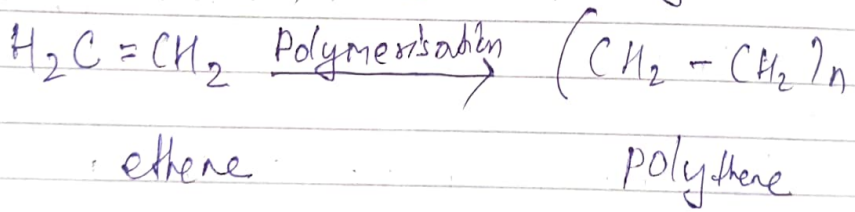 H₂C = CH₂ Polymerisation (CH₂ - CH₂)n
ethene polythene